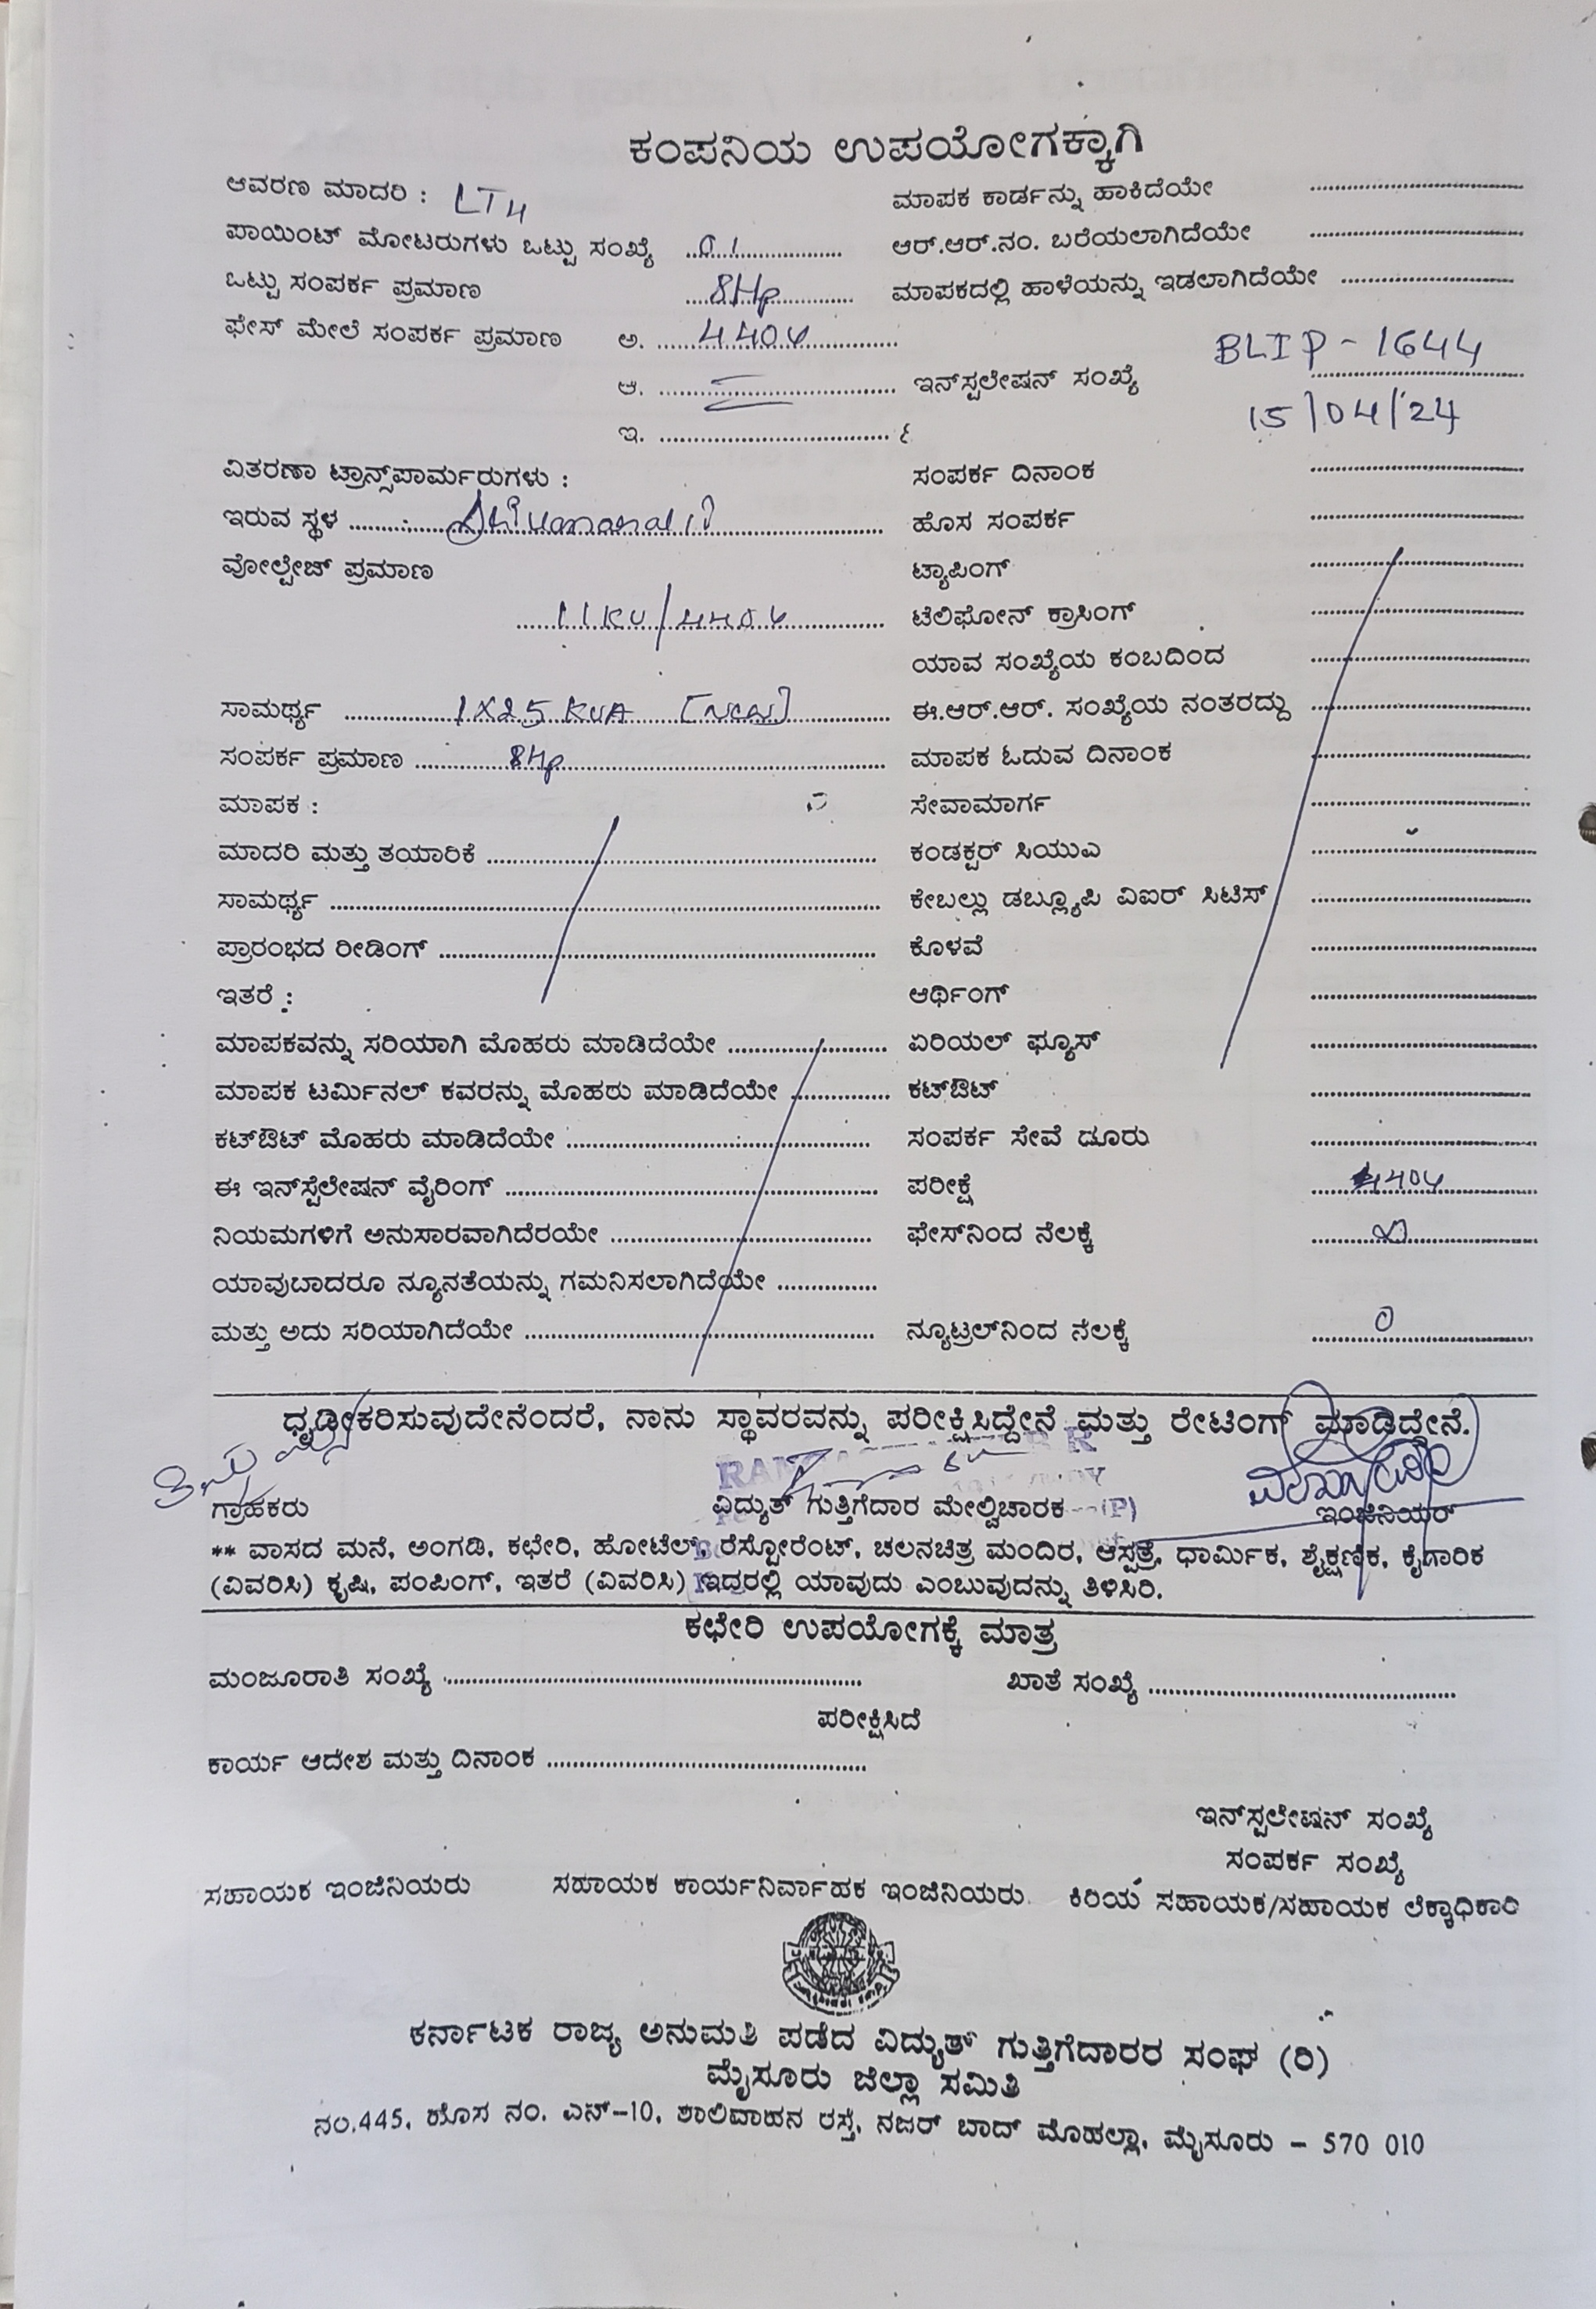 ಕಂಪನಿಯ ಉಪಯೋಗಕ್ಕಾಗಿ
ಆವರಣ ಮಾದರಿ : LT4 ಮಾಪಕ ಕಾರ್ಡನ್ನು ಹಾಕಿದೆಯೇ
ಪಾಯಿಂಟ್ ಮೋಟರುಗಳು ಒಟ್ಟು ಸಂಖ್ಯೆ 01 ಆರ್.ಆರ್.ನಂ. ಬರೆಯಲಾಗಿದೆಯೇ
ಒಟ್ಟು ಸಂಪರ್ಕ ಪ್ರಮಾಣ 8Hp ಮಾಪಕದಲ್ಲಿ ಹಾಳೆಯನ್ನು ಇಡಲಾಗಿದೆಯೇ
ಫೇಸ್ ಮೇಲೆ ಸಂಪರ್ಕ ಪ್ರಮಾಣ ಅ. 440V
BLIP - 1644
ಆ. ಇನ್‌ಸ್ಟಲೇಷನ್ ಸಂಖ್ಯೆ
15/04/24
ಇ.
ವಿತರಣಾ ಟ್ರಾನ್ಸ್‌ಪಾರ್ಮರುಗಳು : ಸಂಪರ್ಕ ದಿನಾಂಕ
ಇರುವ ಸ್ಥಳ ಹೊಸ ಸಂಪರ್ಕ
ವೋಲ್ಟೇಜ್ ಪ್ರಮಾಣ ಟ್ಯಾಪಿಂಗ್
11KV/440V ಟೆಲಿಫೋನ್ ಕ್ರಾಸಿಂಗ್
ಯಾವ ಸಂಖ್ಯೆಯ ಕಂಬದಿಂದ
ಸಾಮರ್ಥ್ಯ 1X25 KVA [New] ಈ.ಆರ್.ಆರ್. ಸಂಖ್ಯೆಯ ನಂತರದ್ದು
ಸಂಪರ್ಕ ಪ್ರಮಾಣ 8Hp ಮಾಪಕ ಓದುವ ದಿನಾಂಕ
ಮಾಪಕ : ಸೇವಾಮಾರ್ಗ
ಮಾದರಿ ಮತ್ತು ತಯಾರಿಕೆ ಕಂಡಕ್ಟರ್ ಸಿಯುಎ
ಸಾಮರ್ಥ್ಯ ಕೇಬಲ್ಲು ಡಬ್ಲ್ಯೂಪಿ ವಿಐರ್ ಸಿಟಿಸ್
ಪ್ರಾರಂಭದ ರೀಡಿಂಗ್ ಕೊಳವೆ
ಇತರೆ : ಆರ್ಥಿಂಗ್
ಮಾಪಕವನ್ನು ಸರಿಯಾಗಿ ಮೊಹರು ಮಾಡಿದೆಯೇ ಏರಿಯಲ್ ಫ್ಯೂಸ್
ಮಾಪಕ ಟರ್ಮಿನಲ್ ಕವರನ್ನು ಮೊಹರು ಮಾಡಿದೆಯೇ ಕಟ್‌ಔಟ್
ಕಟ್‌ಔಟ್ ಮೊಹರು ಮಾಡಿದೆಯೇ ಸಂಪರ್ಕ ಸೇವೆ ದೂರು
ಈ ಇನ್‌ಸ್ಟೆಲೇಷನ್ ವೈರಿಂಗ್ ಪರೀಕ್ಷೆ 440V
ನಿಯಮಗಳಿಗೆ ಅನುಸಾರವಾಗಿದೆರಯೇ ಫೇಸ್‌ನಿಂದ ನೆಲಕ್ಕೆ ∞
ಯಾವುಬಾದರೂ ನ್ಯೂನತೆಯನ್ನು ಗಮನಿಸಲಾಗಿದೆಯೇ
ಮತ್ತು ಅದು ಸರಿಯಾಗಿದೆಯೇ ನ್ಯೂಟ್ರಲ್‌ನಿಂದ ನೆಲಕ್ಕೆ 0
ಧೃಡೀಕರಿಸುವುದೇನೆಂದರೆ, ನಾನು ಸ್ಥಾವರವನ್ನು ಪರೀಕ್ಷಿಸಿದ್ದೇನೆ ಮತ್ತು ರೇಟಿಂಗ್ ಮಾಡಿದ್ದೇನೆ.
ಗ್ರಾಹಕರು ವಿದ್ಯುತ್ ಗುತ್ತಿಗೆದಾರ ಮೇಲ್ವಿಚಾರಕ ಇಂಜಿನಿಯರ್
** ವಾಸದ ಮನೆ, ಅಂಗಡಿ, ಕಛೇರಿ, ಹೋಟೆಲ್, ರೆಸ್ಟೋರೆಂಟ್, ಚಲನಚಿತ್ರ ಮಂದಿರ, ಆಸ್ಪತ್ರೆ, ಧಾರ್ಮಿಕ, ಶೈಕ್ಷಣಿಕ, ಕೈಗಾರಿಕ
(ವಿವರಿಸಿ) ಕೃಷಿ, ಪಂಪಿಂಗ್, ಇತರೆ (ವಿವರಿಸಿ) ಇದರಲ್ಲಿ ಯಾವುದು ಎಂಬುವುದನ್ನು ತಿಳಿಸಿರಿ.
ಕಛೇರಿ ಉಪಯೋಗಕ್ಕೆ ಮಾತ್ರ
ಮಂಜೂರಾತಿ ಸಂಖ್ಯೆ ಖಾತೆ ಸಂಖ್ಯೆ
ಪರೀಕ್ಷಿಸಿದೆ
ಕಾರ್ಯ ಆದೇಶ ಮತ್ತು ದಿನಾಂಕ
ಇನ್‌ಸ್ಟಲೇಷನ್ ಸಂಖ್ಯೆ
ಸಂಪರ್ಕ ಸಂಖ್ಯೆ
ಸಹಾಯಕ ಇಂಜಿನಿಯರು ಸಹಾಯಕ ಕಾರ್ಯನಿರ್ವಾಹಕ ಇಂಜಿನಿಯರು ಕಿರಿಯ ಸಹಾಯಕ/ಸಹಾಯಕ ಲೆಕ್ಕಾಧಿಕಾರಿ
ಕರ್ನಾಟಕ ರಾಜ್ಯ ಅನುಮತಿ ಪಡೆದ ವಿದ್ಯುತ್ ಗುತ್ತಿಗೆದಾರರ ಸಂಘ (ರಿ)
ಮೈಸೂರು ಜಿಲ್ಲಾ ಸಮಿತಿ
ನಂ.445, ಹೊಸ ನಂ. ಎನ್-10, ಶಾಲಿವಾಹನ ರಸ್ತೆ, ನಜರ್ ಬಾದ್ ಮೊಹಲ್ಲಾ, ಮೈಸೂರು – 570 010